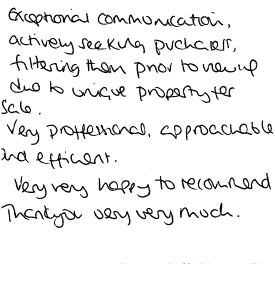 Exceptional communication,
actively seeking puchasers,
filtering them prior to viewing
due to unique property for
sale.
Very proffessional, approachable
and efficent.
Very very happy to recommend
Thankyou very very much.